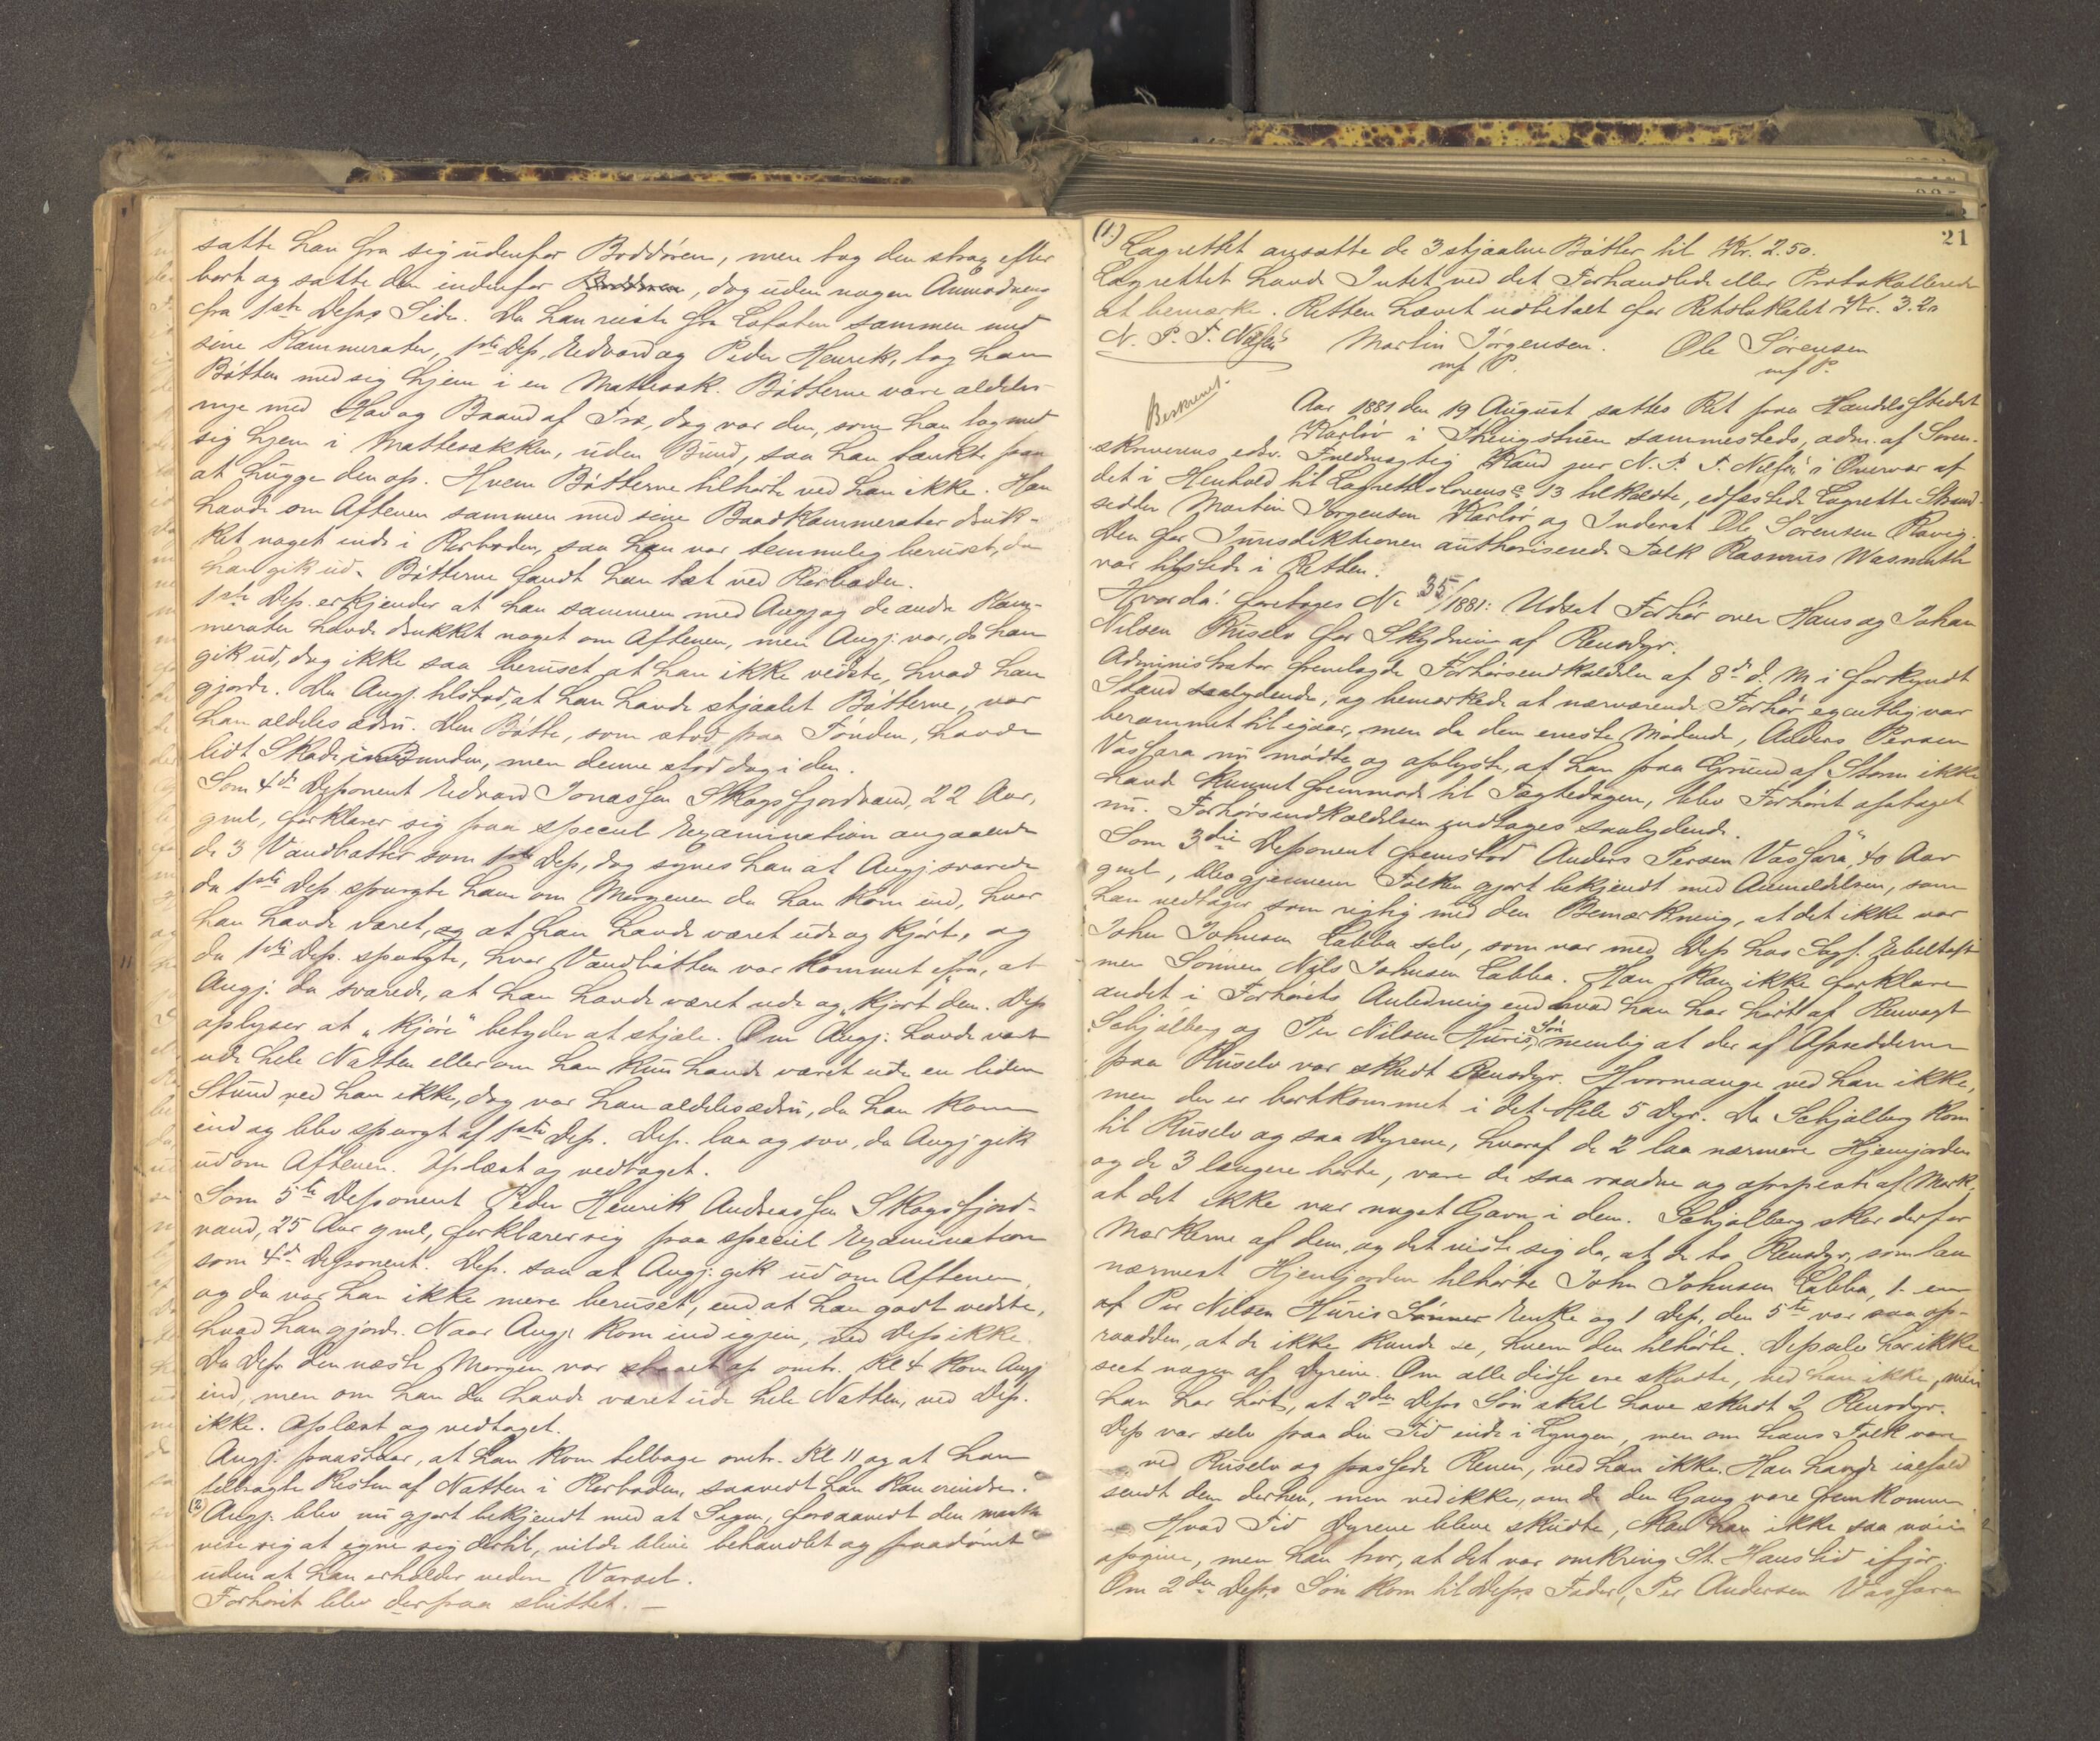 satte han fra sig udenfor Boddøren, men tog den strax efter
bort og satte den indenfor Boddøren, dog uden nogen Anmodning
fra 1ste Depts Side. Da han reiste fra Lofoten sammen med
sine Kammerater, 1ste Dep, Edvard og Peder Henrik, tog han
Bøtten med sig hjem i en Mattesæk. Bøtterne vare aldeles
nye med Hav og Baand af Træ, dog var den, som han tog med
sig hjem i Mattesækken, uden Bund, saa han tænkte paa
at hugge den op. Hvem Bøtterne tilhørte ved han ikke. Han
havde om Aftenen sammen med sine Baadkammerater druk-
ket noget inde i Rorboden, saa han var temmelig beruset, da
han gik ud. Bøtterne fandt han tæt ved Rorboden.
1ste Dep. erkjender at han sammen med Angj og de andre Kam-
merater havde drukket noget om Aftenen, men Angj: var, da han
gik ud, dog ikke saa beruset at han ikke vidste, hvad han
gjorde. Da Angj. tilstod, at han havde stjaalet Bøtterne, var
han aldeles ædru. Den Bøtte, som stod paa Tønden, havde
lidt Skade i Bunden, men denne stod dog i den.
Som 4de Deponent Edvard Jonassen Skogsfjordvand, 22 Aar,
gml, forklarer sig paa speciel Examination angaaende
de 3 Vandbøtter som 1ste Dep, dog synes han at Angj svarede
da 1ste Dep. spurgte ham om Morgenen da han kom ind, hvor
han havde været, og at han havde været ude og kjørt, og
da 1ste Dep. spurgte, hvor Vandbøtten var kommet ifra, at
Angj: da svarede, at han havde været ude og „kjørt“ den. Dep
oplyser at „kjøre“ betyder at stjæle. Om Angj: havde været
ude hele Natten eller om han kun havde været ude en liden
Stund ved han ikke, dog var han aldeles ædru, da han kom
ind og blev spurgt af 1ste Dep. Dep. laa og sov, da Angj gik
ud om Aftenen. Oplæst og vedtaget.
Som 5te Deponent Peder Henrik Andreassen Skogsfjord-
vand, 25 Aar gml, forklarer sig paa speciel Examination
som 4de Deponent. Dep. saa at Angj: gik ud om Aftenen,
og da var han ikke mere beruset, end at han godt vidste,
hvad han gjorde. Naar Angj: kom ind igjen, ved Dep ikke.
Da Dep den næste Morgen var staaet op omtr. Kl 4 kom Angj
ind, men om han da havde været ude hele Natten, ved Dep.
ikke. Oplæst og vedtaget.
Angj. paastaar, at han kom tilbage omtr. Kl 11 og at han
tilbragte Resten af Natten i Rorboden, saavidt han kan erindre.
(2) Angj: blev nu gjort bekjendt med at Sagen, forsaavidt den maatte
vise sig at egne sig dertil, vilde blive behandlet og paadømt
uden at han erholder videre Varsel.
Forhøret blev derpaa sluttet. —
21
(1.) Lagrettet ansatte de 3 stjaalne Bøtter til Kr. 2.50.
Lagrettet havde Intet ved det Forhandlede eller Protokollerede
at bemærke. Retten hævet udbetalt for Retslokalet Kr. 3.20
N. P. T. Martin Jørgensen. Ole Sørensen
mf P. mf P.
Beskrevet.
Aar 1881 den 19 August sattes Ret paa Handelsstedet
Karlsø i Thingstuen sammesteds, adm. af Soren-
skriverens edsv. Fuldmægtig Kand jur N. P. T. i Overvær af
det i Henhold til Lagretteslovens § 13 tilkaldte, edfæstede Lagrette Strand-
sidder Martin Jørgensen Karlsø og Inderst Ole Sørensen
Den for Jurisdiktionen authoriserede Tolk Rasmus Wasmuth
var tilstede i Retten.
Hvorda: foretoges No 35/1881: Udsat Forhør over Hans og Johan
Nilsen Ruselv for Skydning af Rensdyr.
Administrator fremlagde Forhørsindkaldelse af 8de d. M i forkyndt
Stand saalydende, og bemærkede at nærværende Forhør egentlig var
berammet til igaar, men da den eneste Mødende, Anders Persen
Vasfara nu mødte og oplyste, at han paa Grund af Storm ikke
havde kunnet fremmøde til Tægtedagen, blev Forhøret optaget
nu. Forhørsindkaldelsen indtages saalydende.
Som 3die Deponent fremstod Anders Persen Vasfara, 40 Aar
gml, blev gjennem Tolken gjort bekjendt med Anmeldelsen, som
han vedtager som rigtig med den Bemærkning, at det ikke var
John Johnsen Labba selv, som var med Dep hos Sagf. Ebeltoft
men Sønnen Nils Johnsen Labba. Han kan ikke forklare
andet i Forhørets Anledning end hvad han har hørt af Renvogt
Schjølberg og Per Nilsen Huris Søn, nemlig at der af Opsidderne
paa Ruselv var skudt Rensdyr. Hvormange ved han ikke,
men der er bortkommet i det Hele 5 Dyr. Da Schjølberg kom
til Ruselv og saa Dyrene, hvoraf de 2 laa nærmere Hjemjorden
og de 3 længere borte, vare de saa raadne og opspiste af Mark,
at det ikke var noget Gavn i dem. Schjølberg skar derfor
Mærkerne af dem, og det viste sig da, at de to Rensdyr, som laa
nærmest Hjemjorden tilhørte John Johnsen Labba, 1 en
af Per Nilsen Huris Sønner Enke og 1 Dep, den 5te var saa op-
raadden, at de ikke kunde se, hvem den tilhørte. Dep selv har ikke
seet nogen af Dyrene. Om alle disse ere skudte, ved han ikke, men
han har hørt, at 2den Deps Søn skal have skudt 2 Rensdyr.
Dep var selv paa den Tid inde i Lyngen, men om hans Folk vare
ved Ruselv og passede Renen, ved han ikke. Han havde ialfald
sendt dem derhen, men ved ikke, om de den Gang vare fremkomne.
Hvad Tid Dyrene bleve skudte, kan han ikke saa nøie
opgive, men han tror, at det var omkring St. Hanstid ifjor.
Om 2den Deps Søn kom til Deps Fader, Per Andersen Vasfara